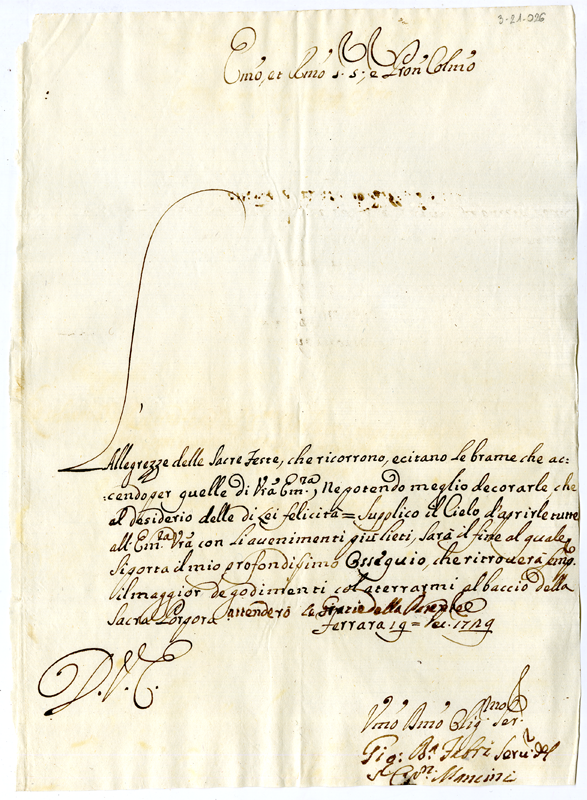 3-21-026
Emo, et Rmo S: S:, e Pron Colmo
Allegrezze delle Sacre Feste, che ricorrono, ecitano le brame che ac=
=cendo per quelle di Vra Em.ra, Ne potendo meglio decorarle che
al desiderio delle di Lei felicità = Supplico il Cielo d'aprirle tutte
all Em.ra Vra con li avenimenti più lieti, Sarà il fine al quale
Si porta il mio profondisimo Ossequio, che ritroverà
il maggior de godimenti col aterrarmi al baccio della
Sacra Porpora attenderò le grazie della
Ferrara 19 = 1729
D. V. E.
Vmo Oblig.mo Ser.
Gig: Ba Fabri Seru.e del
S. Mancini